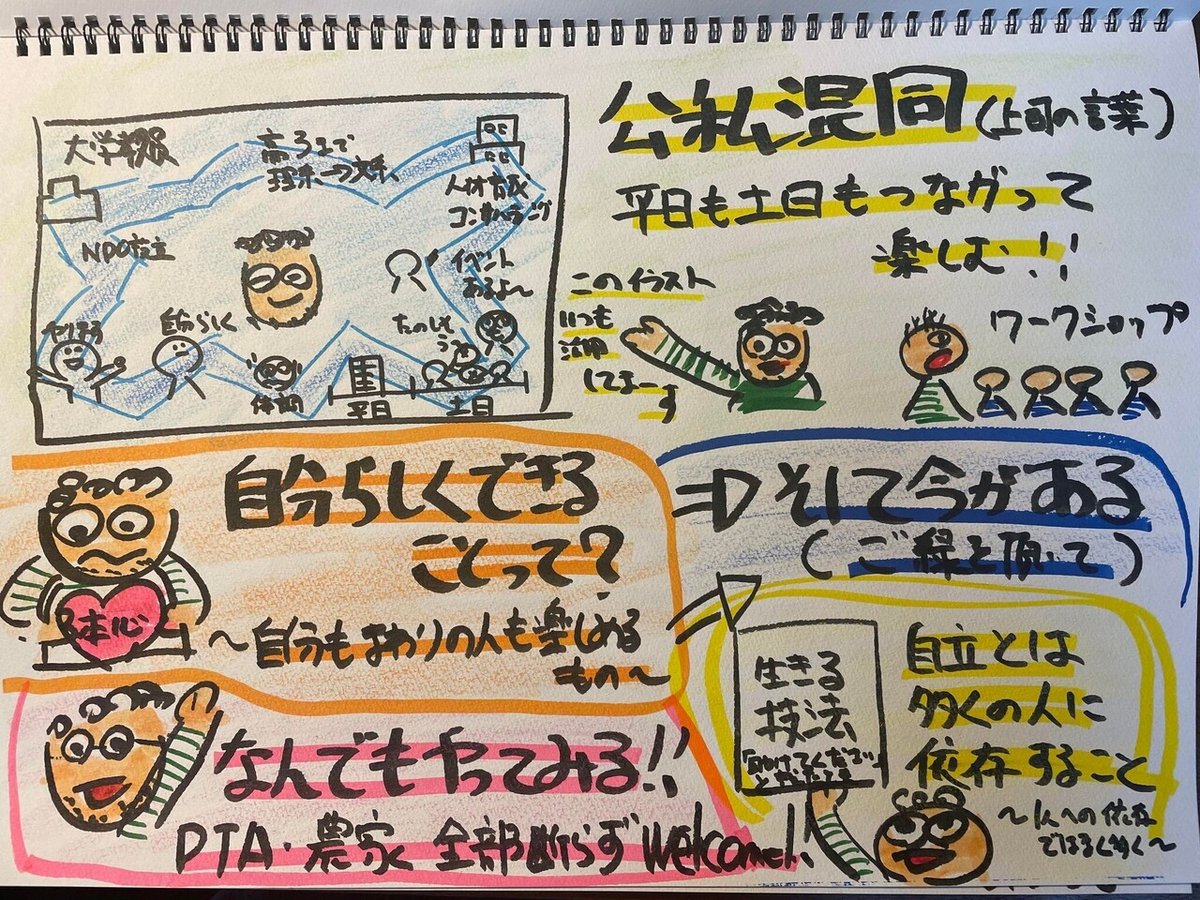 公私混同(上司の言葉)
平日も土日もつながって
楽しむ!!
大学教員
高3まで
理系→文系、
人材育成
コンサルティング
NPO設立
イベント
あるよ〜
自分らしく
たのしそう
休職
平日
土日
このイラスト
いつも
活用
してまーす
ワークショップ
自分らしくできる
ことって?
〜自分もまわりの人も楽しめる
もの〜
本心
⇒そして今がある
(ご縁を頂いて)
生きる
技法
自立とは
多くの人に
依存すること
〜1人への依存
ではなく多く〜
なんでもやってみる!!
PTA・農家 全部断らずWelcome!